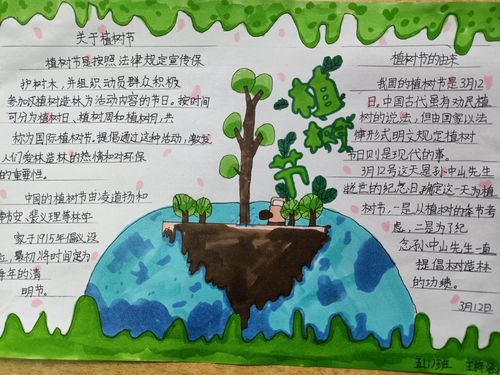 关于植树节
植树节是按照法律规定宣传保
护树木，并组织动员群众积极
参加以植树造林为活动内容的节日。按时间
可分为植树日、植树周和植树月，共
称为国际植树节。提倡通过这种活动，激发
人们爱林造林的热情和对环保
的重要性。
中国的植树节由凌道扬和
韩安、裴义理等林学
家于1915年倡议设
立，最初将时间定为
每年的清
明节。
植树节
植树节的由来
我国的植树节是3月12
日，中国古代虽有劝民植
树的说法，但由国家以法
律形式明文规定植树
节日则是现代的事。
3月12号这天是孙中山先生
逝世的纪念日，确定这一天为植
树节，一是从植树的季节考
虑，二是为了纪
念孙中山先生一直
提倡树造林
的功绩。
3月12日